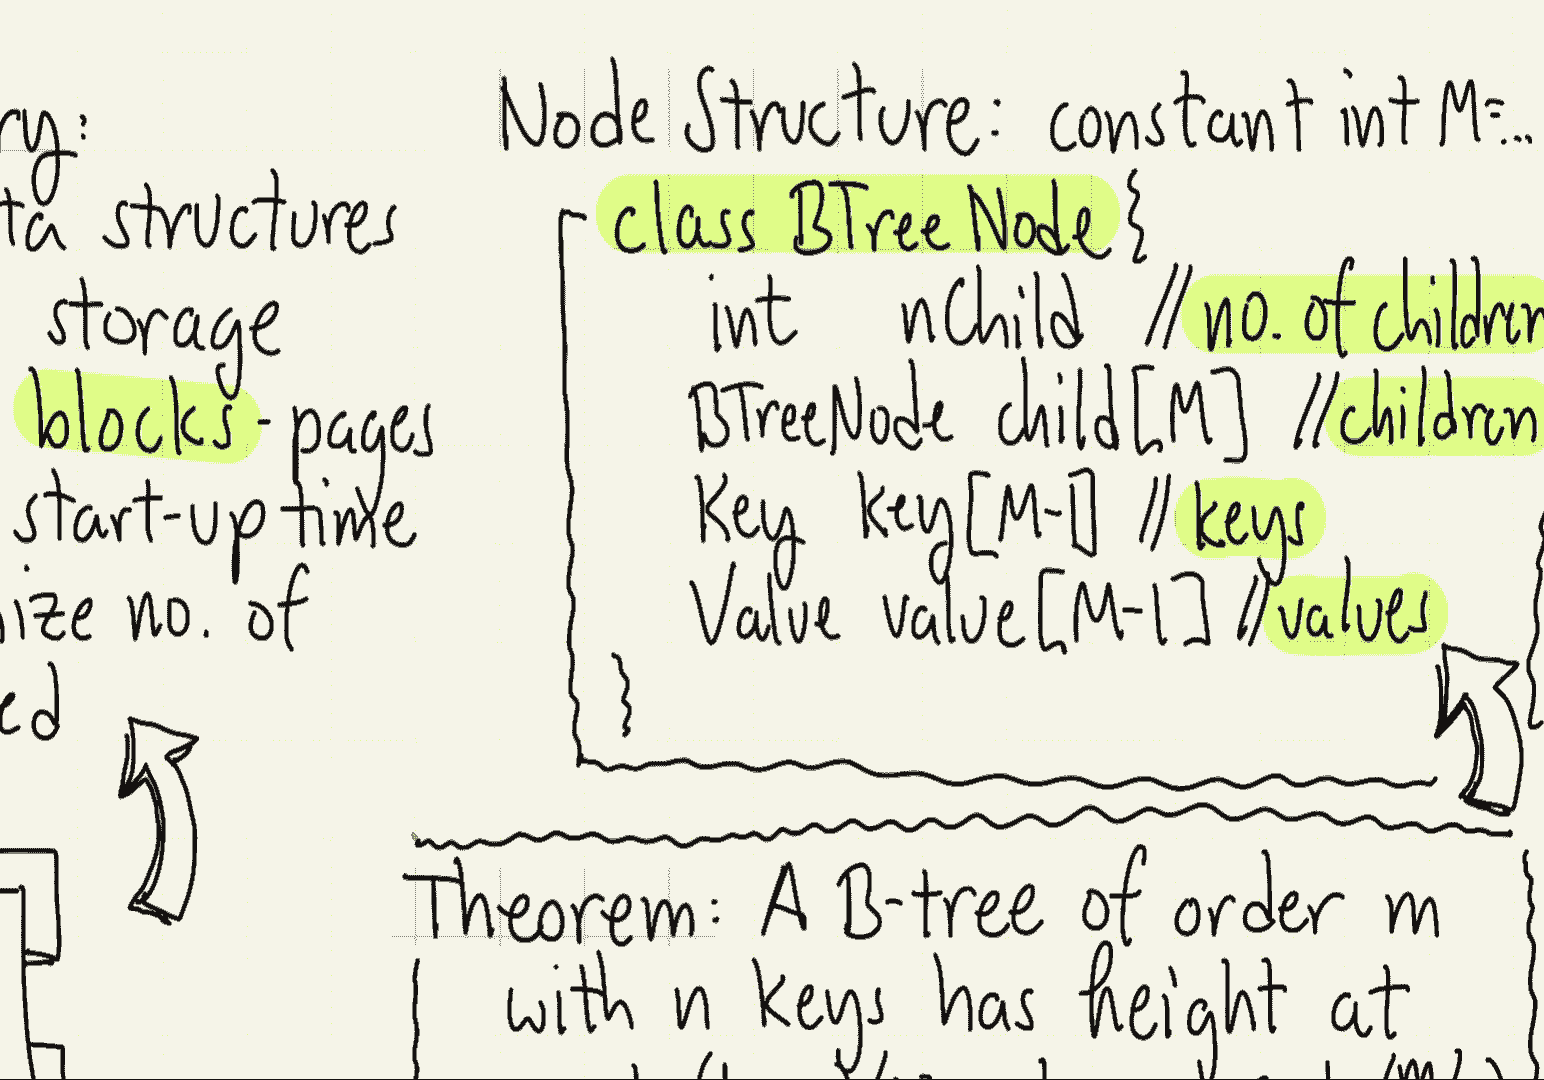 ry:
ta structures
storage
blocks-pages
start-up time
ize no. of
ed
Node Structure: constant int M=...
class BTreeNode {
int nChild // no. of children
BTreeNode child[M] // children
Key key[M-1] // keys
Value value[M-1] // values
}
Theorem: A B-tree of order m
with n keys has height at